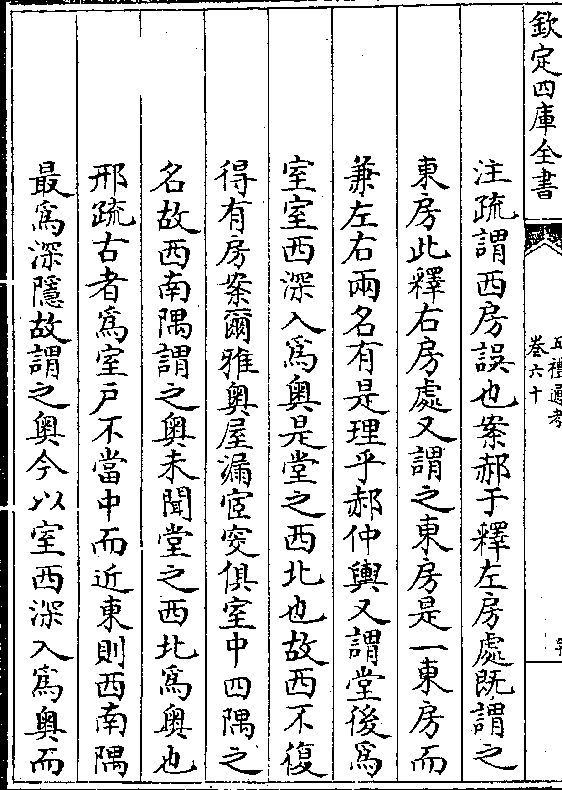 欽定四庫全書
五禮通考
卷六十
注疏謂西房誤也案郝于釋左房處既謂之
東房此釋右房處又謂之東房是一東房而
兼左右兩名有是理乎郝仲輿又謂堂後爲
室室西深入爲奧是堂之西北也故西不復
得有房案爾雅奧屋漏宧窔俱室中四隅之
名故西南隅謂之奧未聞堂之西北爲奧也
邢疏古者爲室戸不當中而近東則西南隅
最爲深隱故謂之奧今以室西深入爲奧而